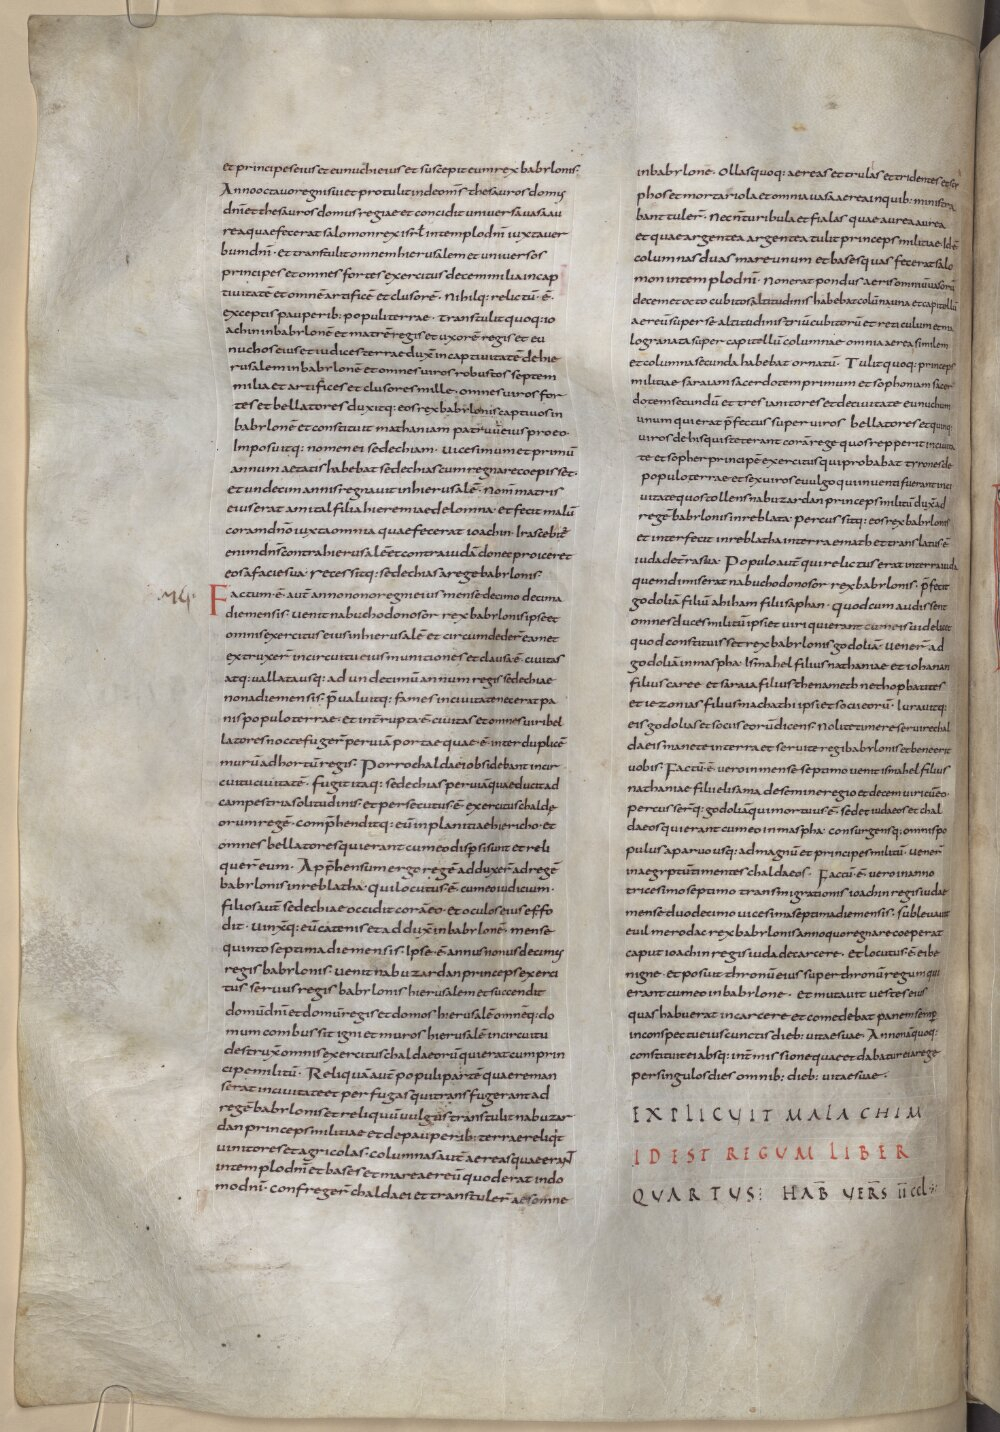 et principes eius et eunuchi eius et suscepit eum rex babylonis.
Anno octavo regni sui et protulit inde om̄s thesauros domus
dn̄i et thesauros domus regiae et concidit universa vasa au
rea quae fecerat salomon rex isrl̄ in templo dn̄i iuxta ver
bum dn̄i. et transtulit omnem hierusalem et universos
principes et omnes fortes exercitus decem milia in cap
tivitatē et omnē artificē et clusorē. Nihilq: relictū .ē.
exceptis pauperib: populi terrae. Transtulit quoq: io
achin in babylonē et matrē regis et uxorē regis et eu
nuchos eius et iudices terrae duxit in captivitatē de hie
rusalem in babylonē et omnes viros robustos septem
milia et artifices et clusores mille. omnes viros for
tes et bellatores duxitq: eos rex babylonis captivos in
babylonē et constituit mathaniam patruū eius pro eo.
Imposuitq: nomen ei sedechiam. Vicesimum et primū
annum aetatis habebat sedechias cum regnare coepisset.
et undecim annis regnavit in hierusalē. Nom̄ matris
eius erat amital filia hieremiae de lomna. et fecit malū
coram dn̄o iuxta omnia quae fecerat ioachin. Irascebat̄
enim dn̄s contra hierusalē et contra iudā donec proiceret
eos a facie sua. recessitq: sedechias a rege babylonis.
Factum .ē. aut̄ anno nono regni eius mense decimo decima
die mensis. venit nabuchodonosor rex babylonis ipse et
omnis exercitus eius in hierusalē et circumdeder̄ eam et
extruxer̄ in circuitu eius munitiones et clausa .ē. civitas
atq: vallata usq: ad undecimū annum regis sedechiae
nona die mensis. p̄valuitq: fames in civitate nec erat pa
nis populo terrae. et interrupta ē civitas et omnes viri bel
latores nocte fuger̄ per viā portae quae .ē. inter duplicē
murū ad hortū regis. Porro chaldaei obsidebant in cir
cuitu civitatē. fugit itaq: sedechias per viā quae ducit ad
campestria solitudinis. et persecutus .ē. exercitus chalde
orum regē. comp̄henditq: eū in planitie hiericho. et
omnes bellatores qui erant cum eo dispersi sunt et reli
quer̄ eum. App̄hensum ergo regē adduxer̄ ad regē
babylonis in reblatha. qui locutus .ē. cum eo iudicium.
filios aut̄ sedechiae occidit corā eo. et oculos eius effo
dit. vinxq: eū catenis et adduxit in babylonē. mense
quinto septima die mensis. Ipse .ē. annus nonus decimus
regis babylonis. venit nabuzardan princeps exerci
tus servus regis babylonis hierusalem et succendit
domū dn̄i et domū regis et domos hierusalē omnēq: do
mum combussit igni et muros hierusalē in circuitu
destruxit omnis exercitus chaldaeorū qui erat cum prin
cipe militū. Reliquā aut̄ populi partē quae reman
serat in civitate et perfugas qui transfugerant ad
regē babylonis et reliquū vulgus transtulit nabuzar
dan princeps militiae et de pauperib: terrae reliqt
vinitores et agricolas. columnas aut̄ aereas quae erant
in templo dn̄i et bases et mare aereū quod erat in do
mo dn̄i. confreger̄ chaldaei et transtuler̄ aes omne
in babylonē. Ollas quoq: aereas et trulas et tridentes et scy
phos et mortariola et omnia vasa aerea in quib: ministra
bant tuler̄. Nec n̄ turibula et fialas quae aurea aurea
et quae argentea argentea tulit princeps militiae. Id ē
columnas duas mare unum et bases quas fecerat salo
mon in templo dn̄i. Non erat pondus aeris omniū vasorū
decem et octo cubitos altitudinis habebat colūna una et capitellū
aereū super se altitudinis triū cubitorū et reticulum et ma
logranata super capitellū columnae omnia aerea similem
et columna secunda habebat ornatū. Tulit quoq: princeps
militiae saraiam sacerdotem primum et sophoniam sacer
dotem secundū et tres ianitores et de civitate eunuchum
unum qui erat p̄fectus super viros bellatores et quinq:
viros de his qui steterant corā rege quos repperit in civita
te et sopher principē exercitus qui probabat tyrones de
populo terrae et sex viros e vulgo qui inventi fuerant in ci
vitate quos tollens nabuzardan princeps militū duxit ad
regē babylonis in reblata. percussitq: eos rex babylonis
et interfecit in reblatha in terra emath et translatus .ē.
iuda de t̄ra sua. Populo aut̄ qui relictus erat in terra iuda
quem dimiserat nabuchodonosor rex babylonis. p̄fecit
godoliā filiū ahiham filii saphan. quod cum audissent
omnes duces militū ipsi et viri qui erant cum eis videlicet
quod constituisset rex babylonis godoliā. vener̄ ad
godoliā in maspha. Ismahel filius nathaniae et iohanan
filius caree et saraia filius thenameth nethophatites
et iezonias filius machathi ipsi et socii eorū. Iuravitq:
eis godolias et sociis eorū dicens. Nolite timere servire chal
daeis manete in terra et servite regi babylonis et bene erit
vobis. Factū .ē. vero in mense septimo venit ismahel filius
nathaniae filii elisama de semine regio et decem viri cū eo.
percusser̄q: godoliā qui mortuus .ē. sed et iudaeos et chal
daeos qui erant cum eo in maspha. consurgensq: omnis po
pulus a parvo usq: ad magnū et principes militū. vener̄
in aegyptū timentes chaldaeos. Factū .ē. vero in anno
tricesimo septimo transmigrationis ioachin regis iudae
mense duodecimo vicesima septima die mensis. sublevavit
evilmerodac rex babylonis anno quo regnare coeperat
caput ioachin regis iuda de carcere. et locutus .ē. ei be
nigne. et posuit thronū eius super thronū regum qui
erant cum eo in babylone. et mutavit vestes eius
quas habuerat in carcere et comedebat panem semp̄
in conspectu eius cunctis dieb: vitae suae. Annonā quoq:
constituit ei absq: int̄missione quae et dabatur ei a rege
per singulos dies omnib: dieb: vitae suae.
EXPLICVIT MALACHIM
ID EST REGVM LIBER
QVARTVS: HAB̄ VERS̄ ĪĪ CCL